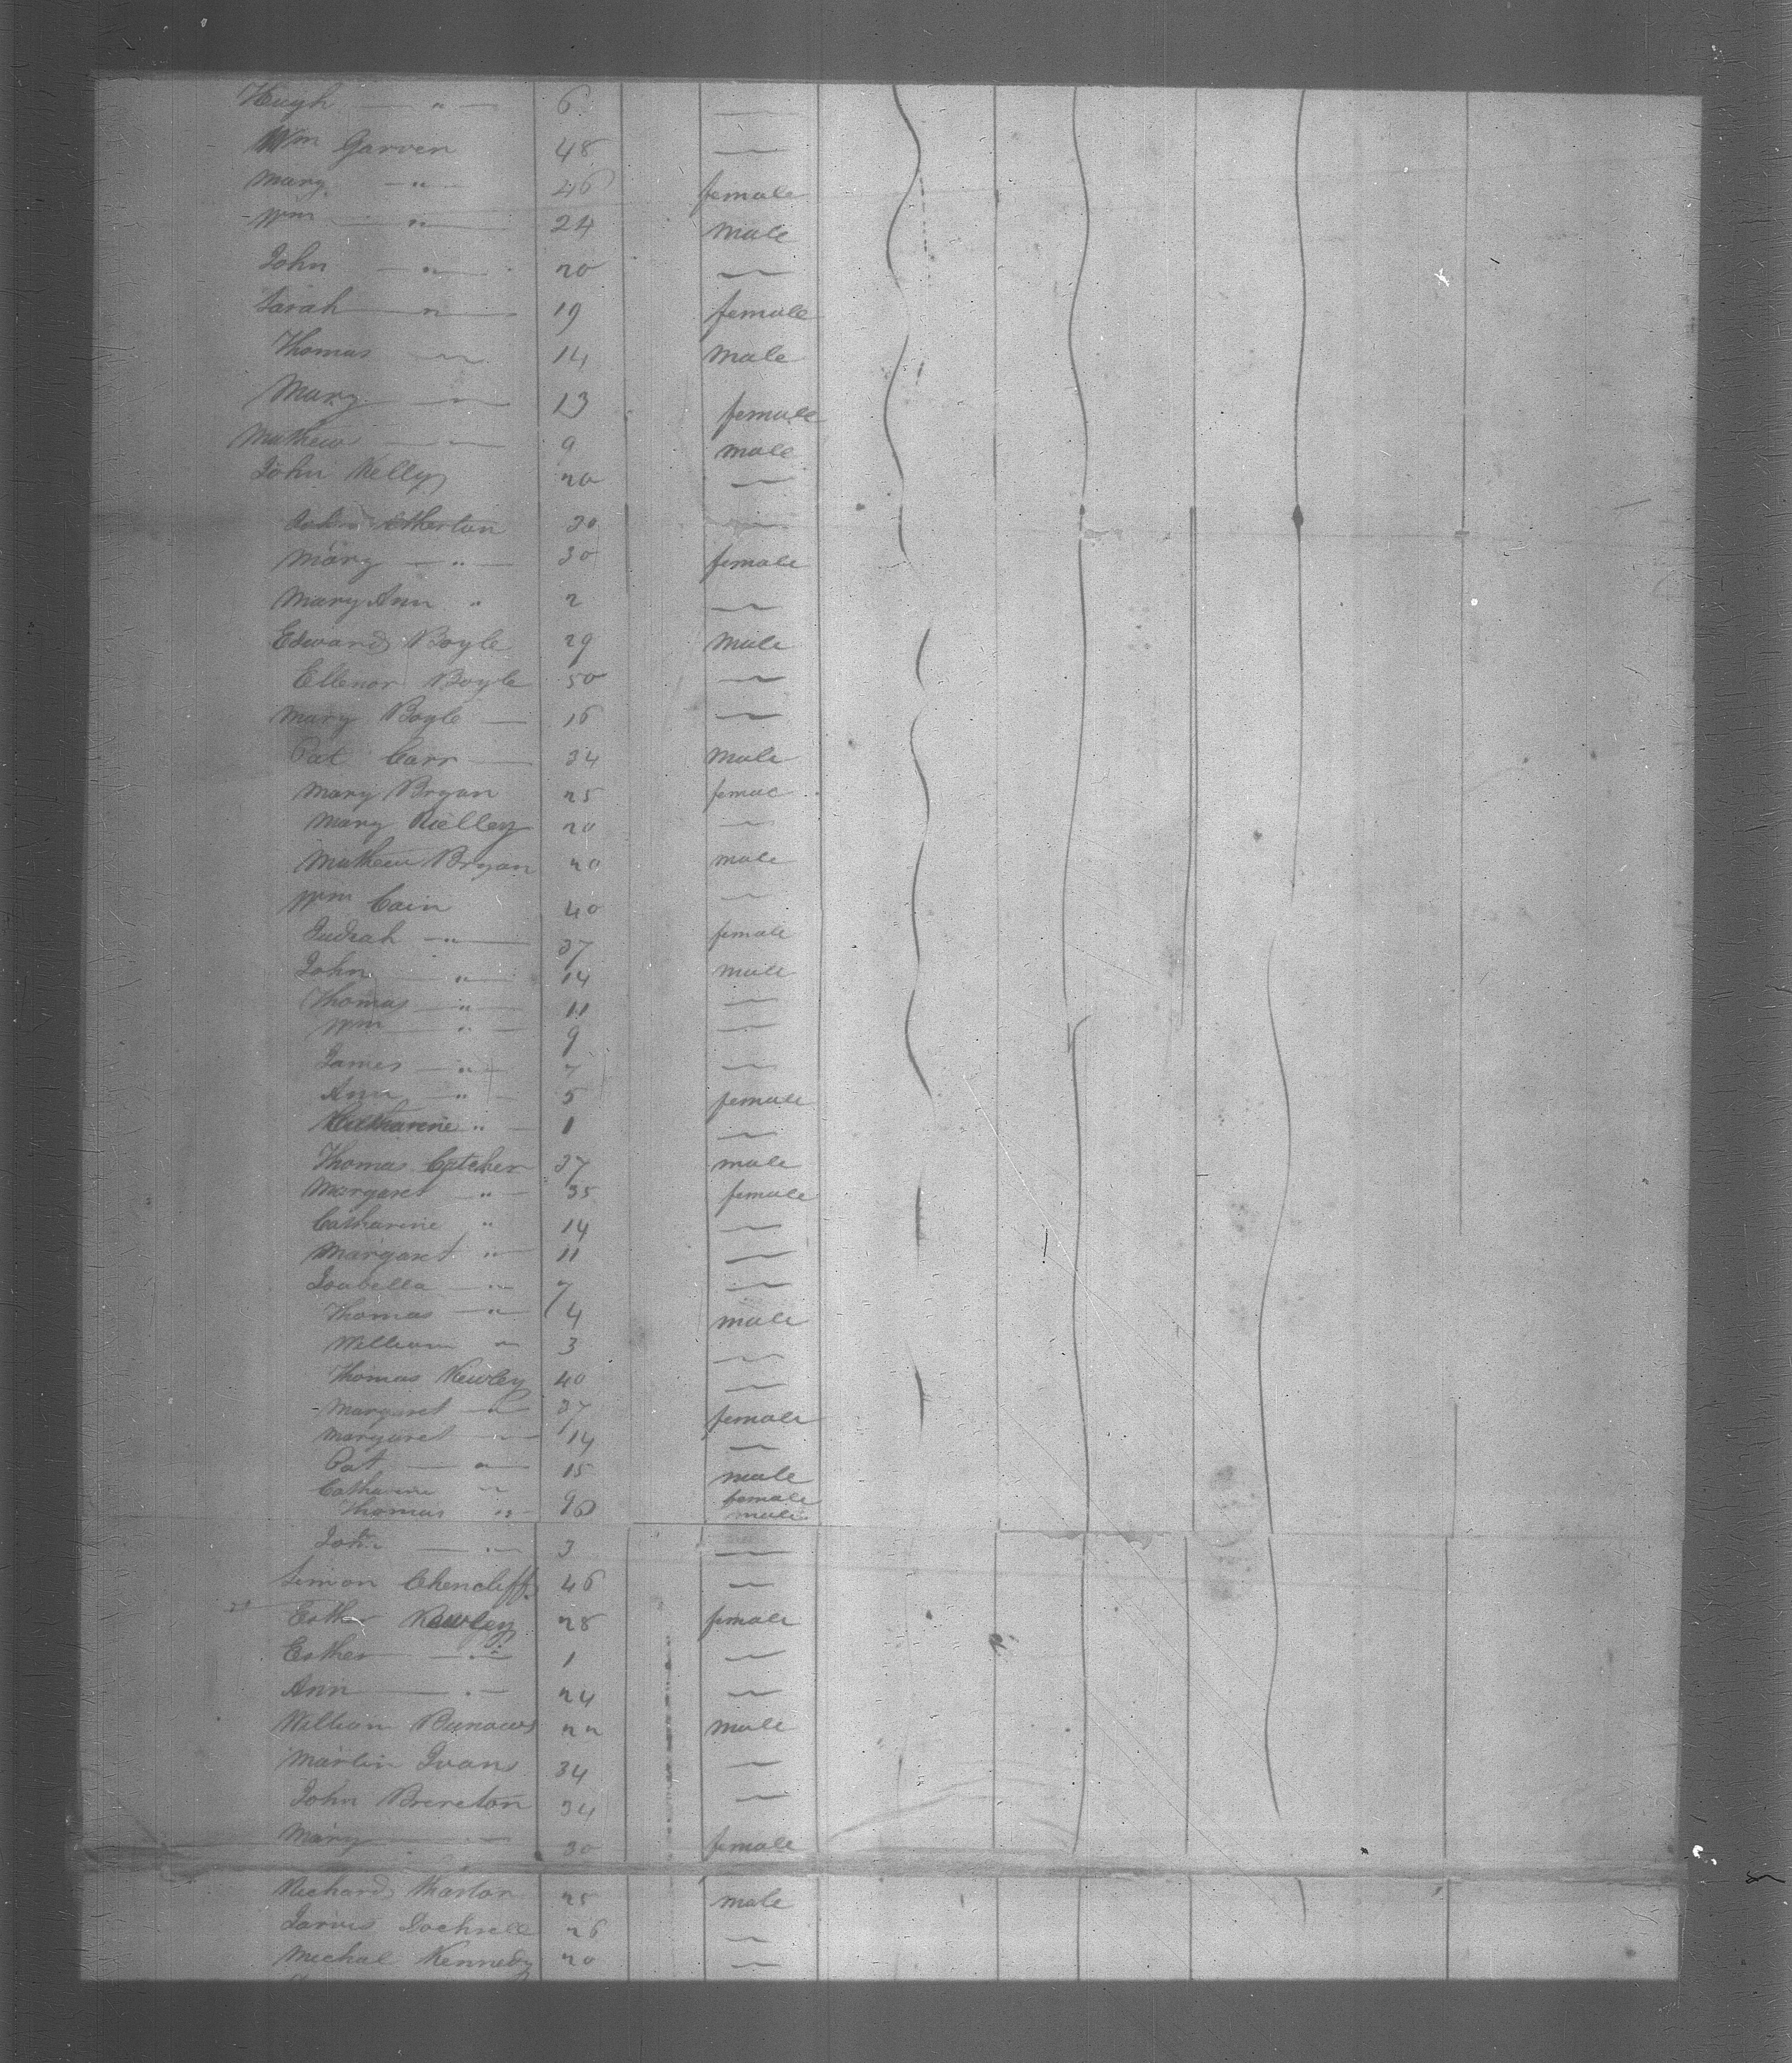 Hugh — " — 6 —
Wm Garven 48 —
Mary — " — 46 female
Wm — " — 24 male
John — " — 20 —
Sarah — " — 19 female
Thomas — " — 14 male
Mary — " — 13 female
Mathew — " — 9 male
John Kelly 20 —
30 —
Mary — " — 30 female
Mary Ann " 2 —
Edward Boyle 29 male
Ellenor Boyle 50 —
Mary Boyle — 16 —
Pat Carr — 34 male
Mary Bryan 25 femae
Mary Rielley 20 —
Mathew Bryan 20 male
Wm Cain 40 —
Judiah — " — 37 female
John — " — 14 male
Thomas — " — 11 —
Wm — " — 9 —
James — " — 7 —
Ann — " — 5 female
Catharine " — 1 —
Thomas Catcher 37 male
Margaret — " — 35 female
Catharine " 14 —
Margaret " — 11 —
Isabella — " — 7 —
Thomas — " 4 male
William " 3 —
Thomas Kewley 40 —
Margaret — " — 37 female
Margaret — " — 14 —
Pat — " — 15 male
Catharine " 9 female
Thomas " — 6 male
John — " — 3 —
Simon 46 —
Esther Kewley 28 female
Esther — " — 1 —
Ann — " — 24 —
William 22 male
Martin Ivans 34 —
John Brereton 34 —
Mary — " — 30 female
Richard 25 male
26 —
Michal Kennedy 20 —